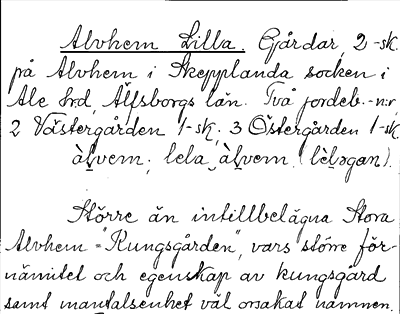 Alvhem Lilla. Gårdar, 2-sk.
på Alvhem i Skepplanda socken i
Ale hrd, Älfsborgs län. Två jordeb.-n:r,
2 Västergården 1-sk, 3 Östergården 1-sk.
àl̯vem, lela àl̯vem, (lèl̯əgan).
Större än intillbelägna Stora
Alvhem "Kungsgården", vars större för-
nämitet och egenskap av kungsgård
samt mantalsenhet väl orsakat namnen.